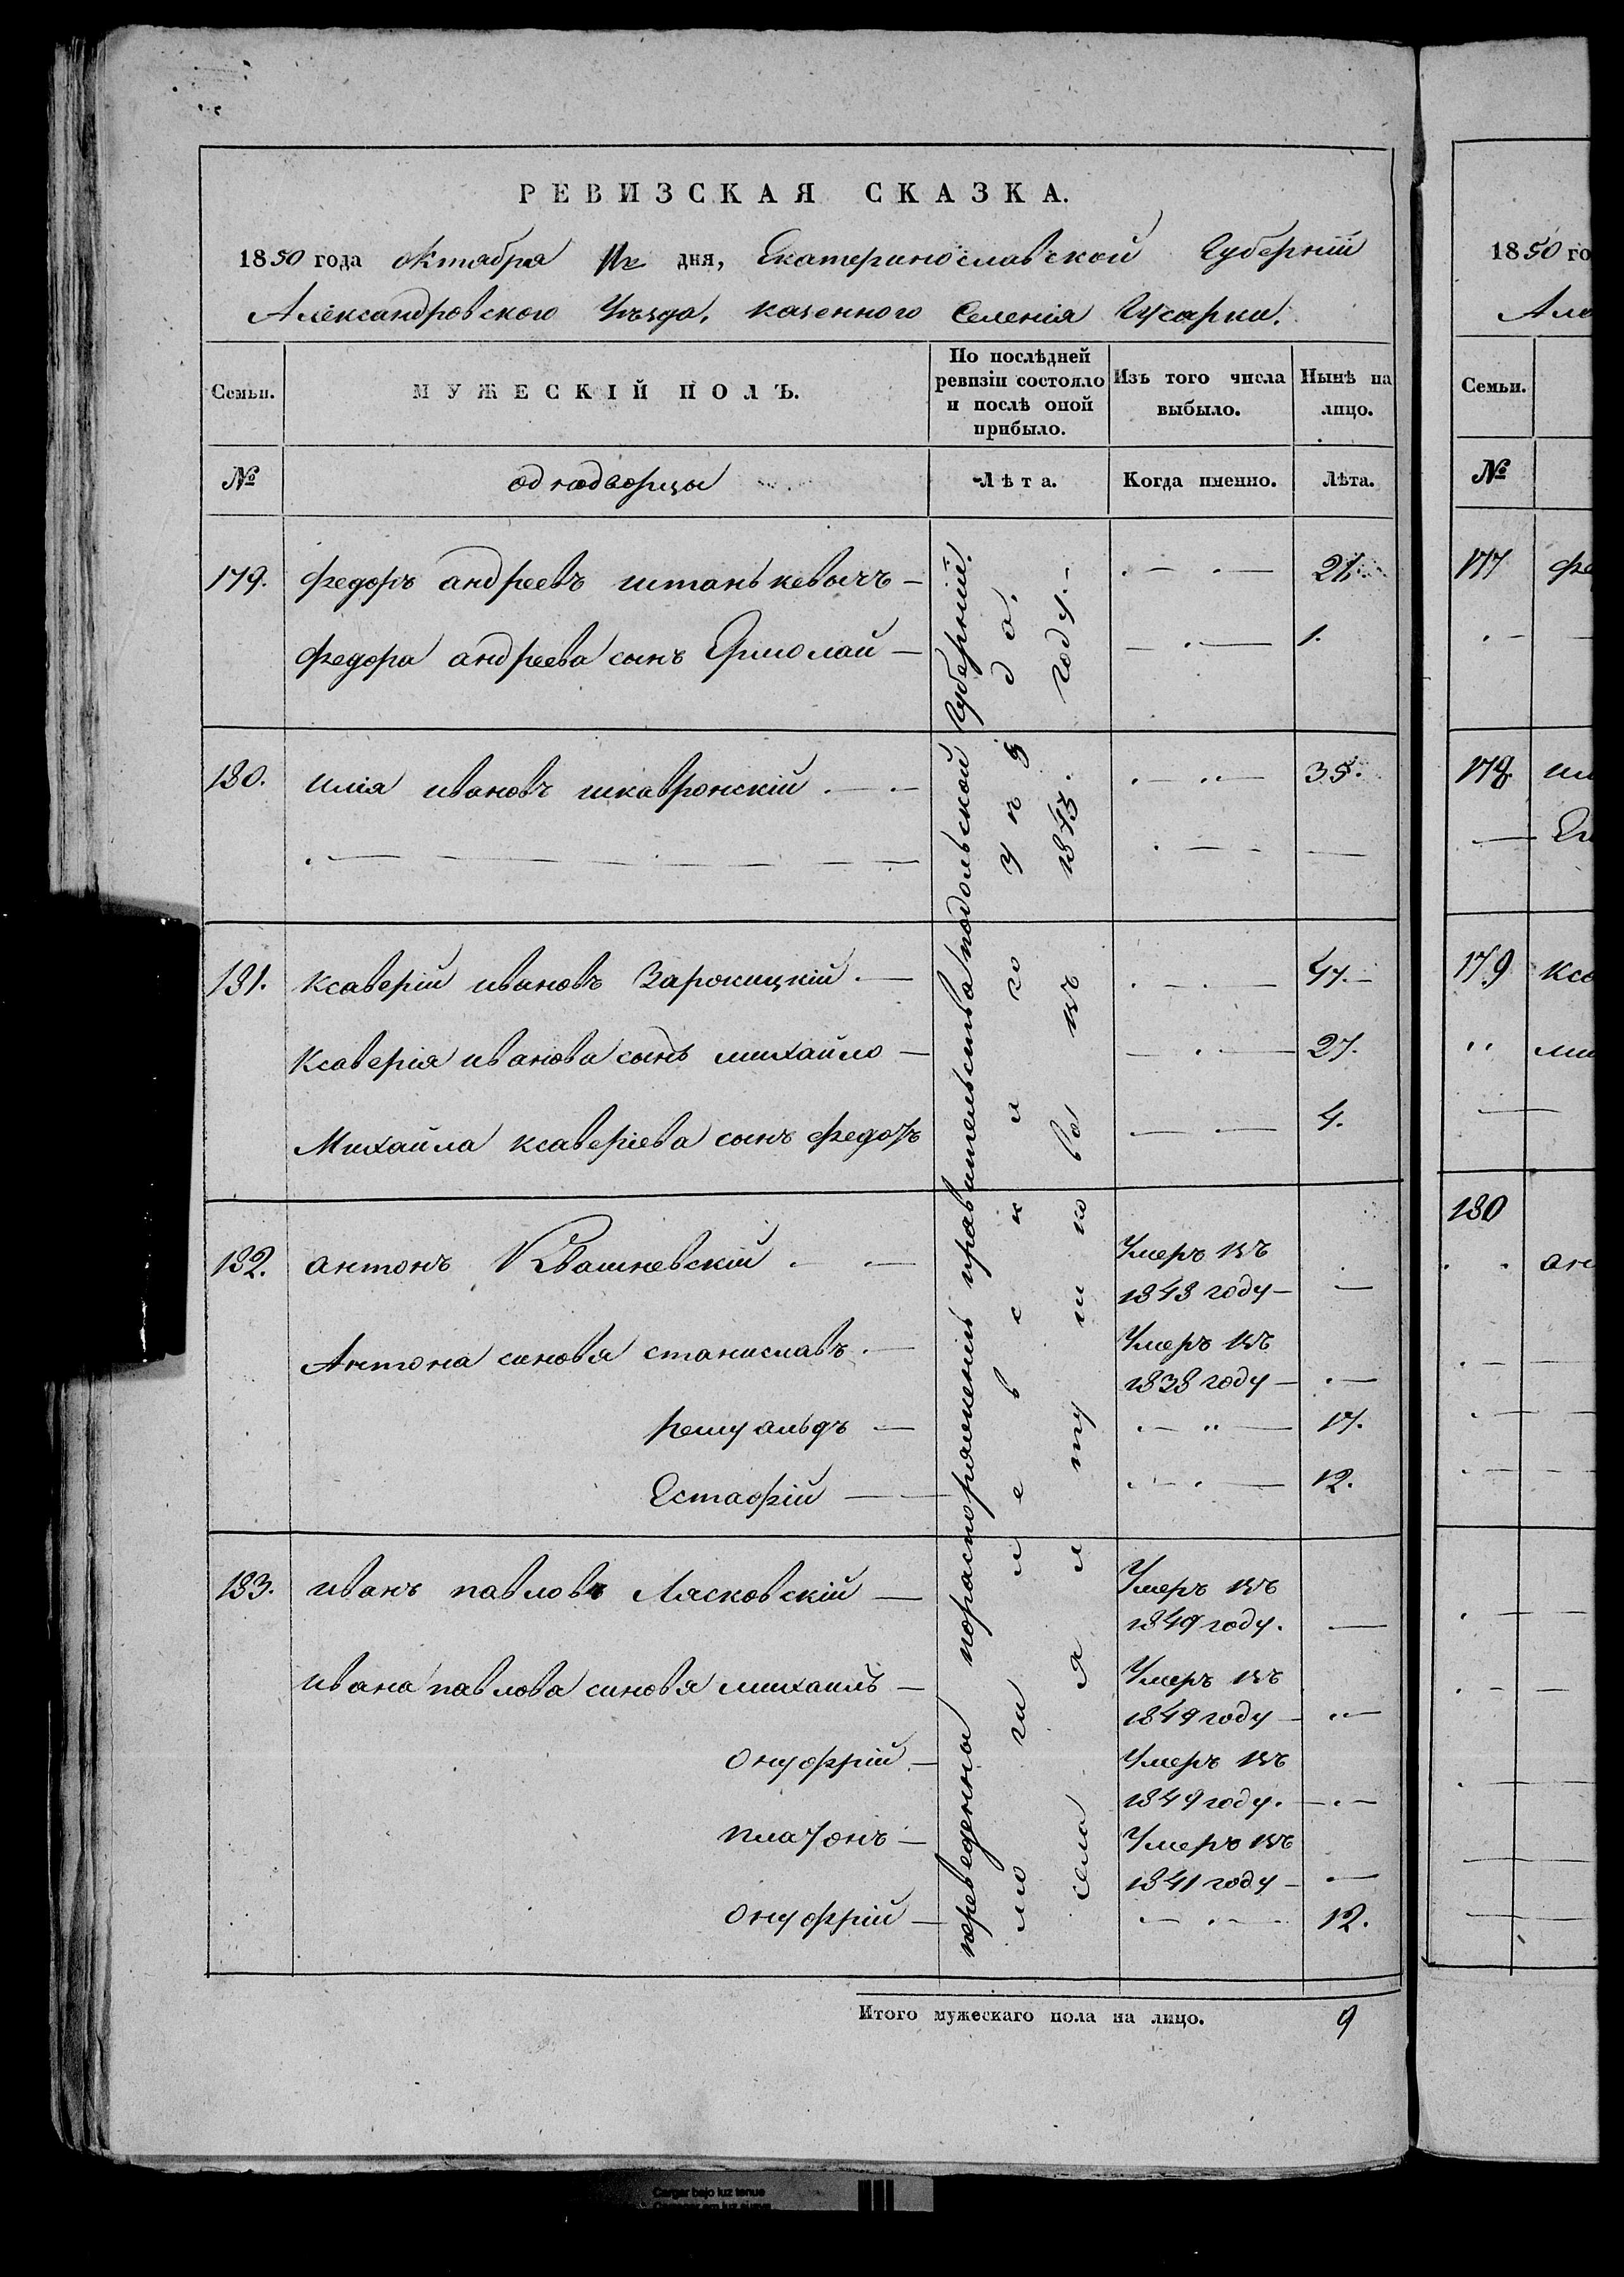 РЕВИЗСКАЯ СКАЗКА.
1850 года октября дня, Екатеринославской Губернїи
Александровского Уѣзда, казенного Селенія Гусарки.
Семьи.
МУЖЕСКІЙ ПОЛЪ.
По послѣдней
ревизіи состояло
и послѣ оной
прибыло.
Изъ того числа
выбыло.
Нынѣ на
лицо.
№
однодворцы
Лѣта.
Когда именно.
Лѣта.
179. Федоръ андреевъ штанькевычъ — 21.
Федора андреева сынъ Ермолай — 1.
180. илія ивановъ шкавронскій — 35.
181. Ксаверій ивановъ Зарокицкій — 47.
Ксаверія иванова сынъ михайло — 27.
Михайла ксаверіева сынъ федотъ 4.
182. антонъ Квашневскій Умеръ въ
1843 году —
Антона синовя станиславъ Умеръ въ
1838 году —
ромуальдъ — 17.
Естафій — 12.
183. иванъ павловъ Лясковскій — Умеръ въ
1849 году.
ивана павлова синовя михаилъ — Умеръ въ
1849 году —
онуфрій — Умеръ въ
1849 году.
платонъ — Умеръ въ
1841 году —
онуфрій — 12.
переведенны пораспоряженію правительства подольской губерніи
могилевского уѣзда,
села въ 1845. году. —
Итого мужескаго пола на лицо. 9
1850 го
Але
Семьи.
№
177 фе
178. ил
Ем
179 ксо
ми
180
ан
Cargar bajo luz tenue